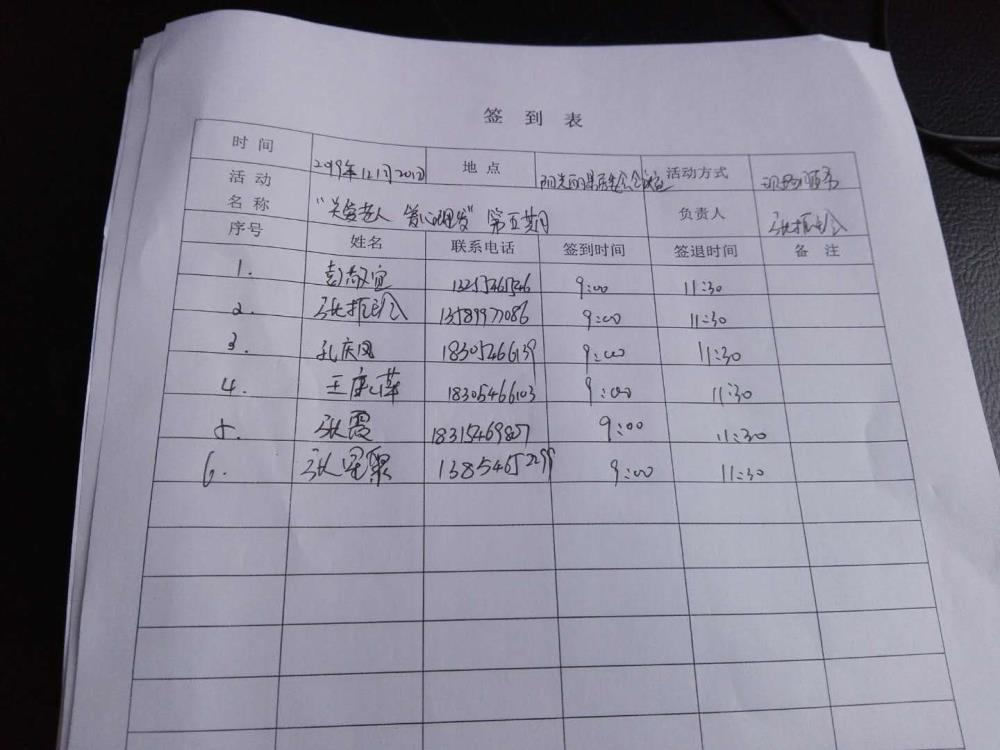 签 到 表
时 间 2019年12月20日 地 点 阳光丽景居委会会议室 活动方式 现场服务
活 动
名 称 “关爱老人 爱心理发”第五期 负责人 张振玲
序号 姓名 联系电话 签到时间 签退时间 备 注
1. 彭敬宜 9:00 11:30
2. 张振玲 13589977086 9:00 11:30
3. 孔庆凤 18305466139 9:00 11:30
4. 18305466103 9:00 11:30
5. 张霞 18315469807 9:00 11:30
6. 9:00 11:30